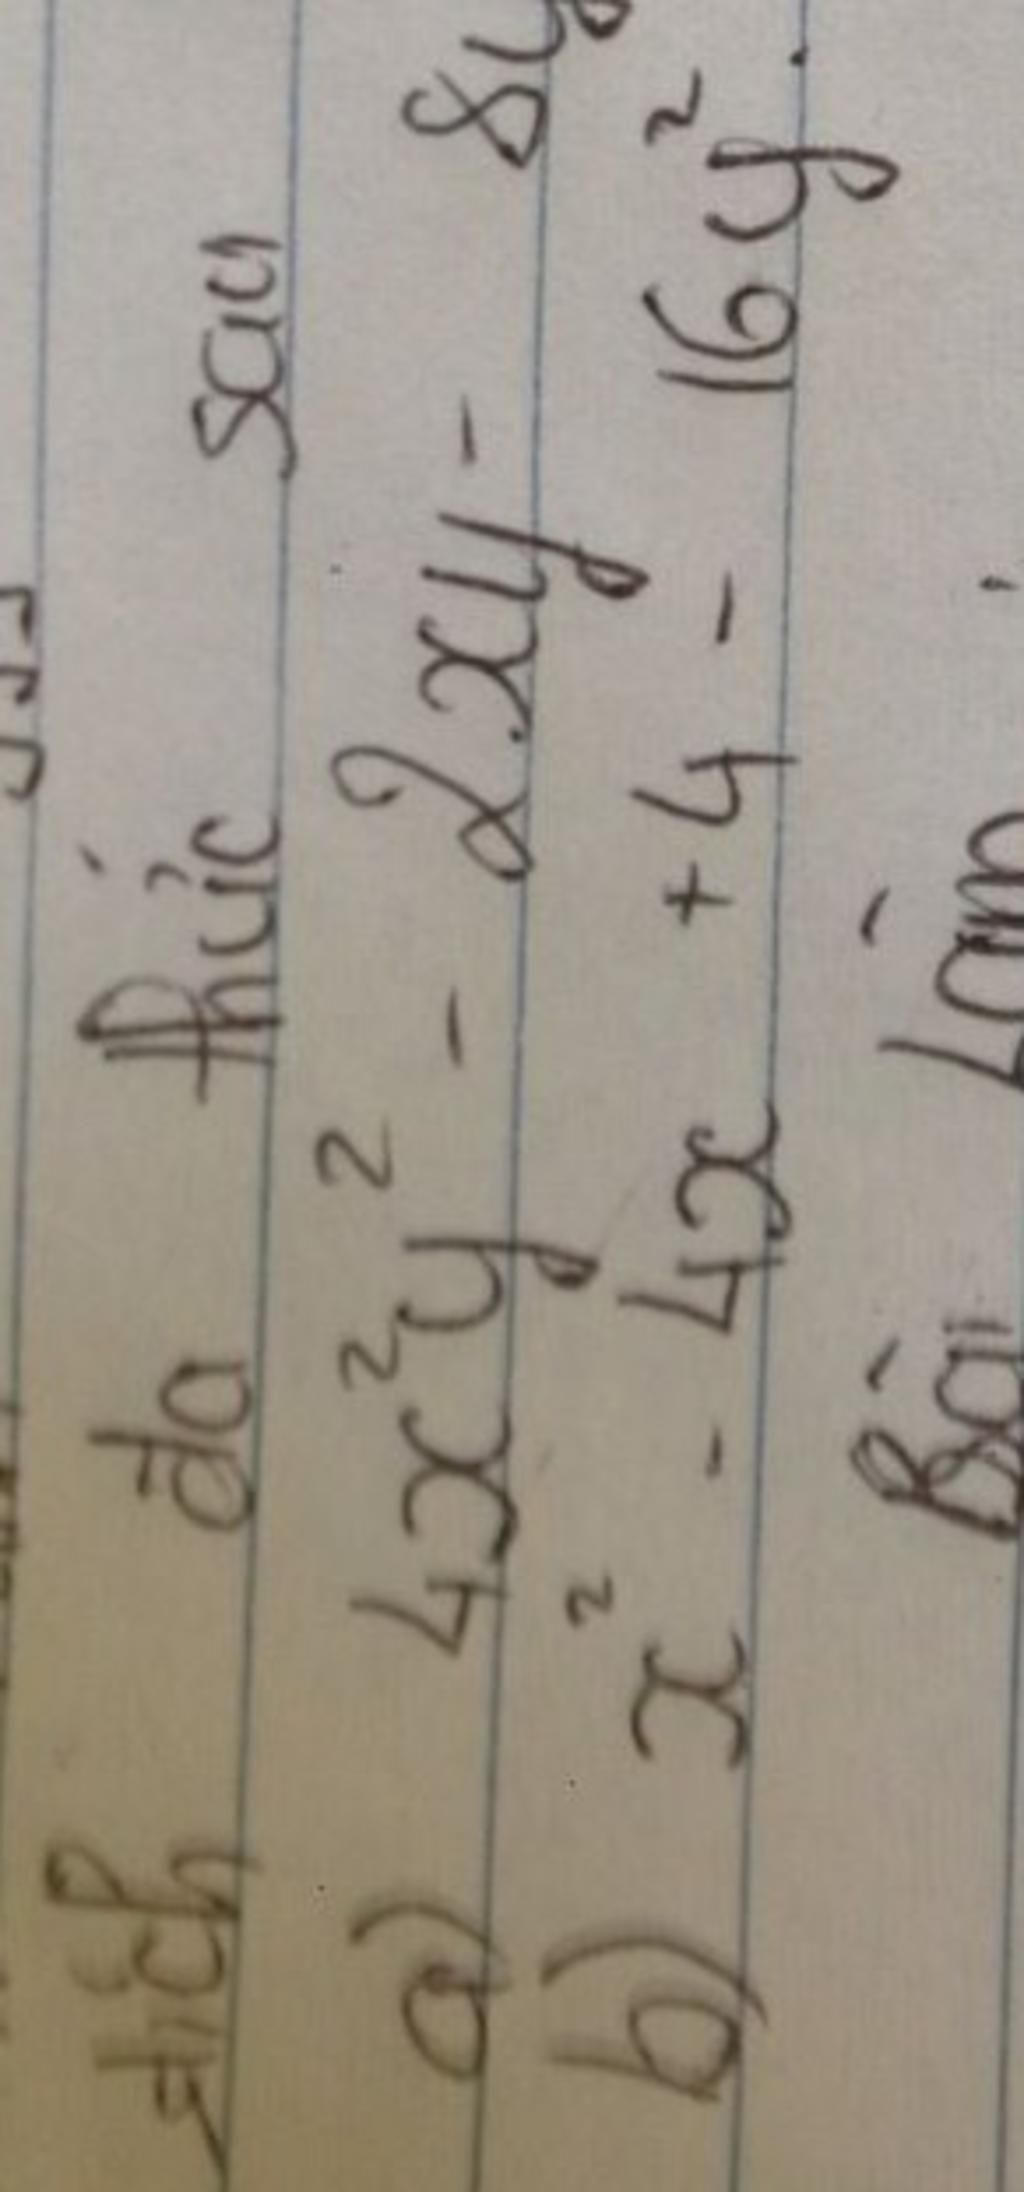 tích đa thức sau
a) 4x²y² - 2xy - 8y
b) x² - 4x + 4 - 16y².
Bài Làm